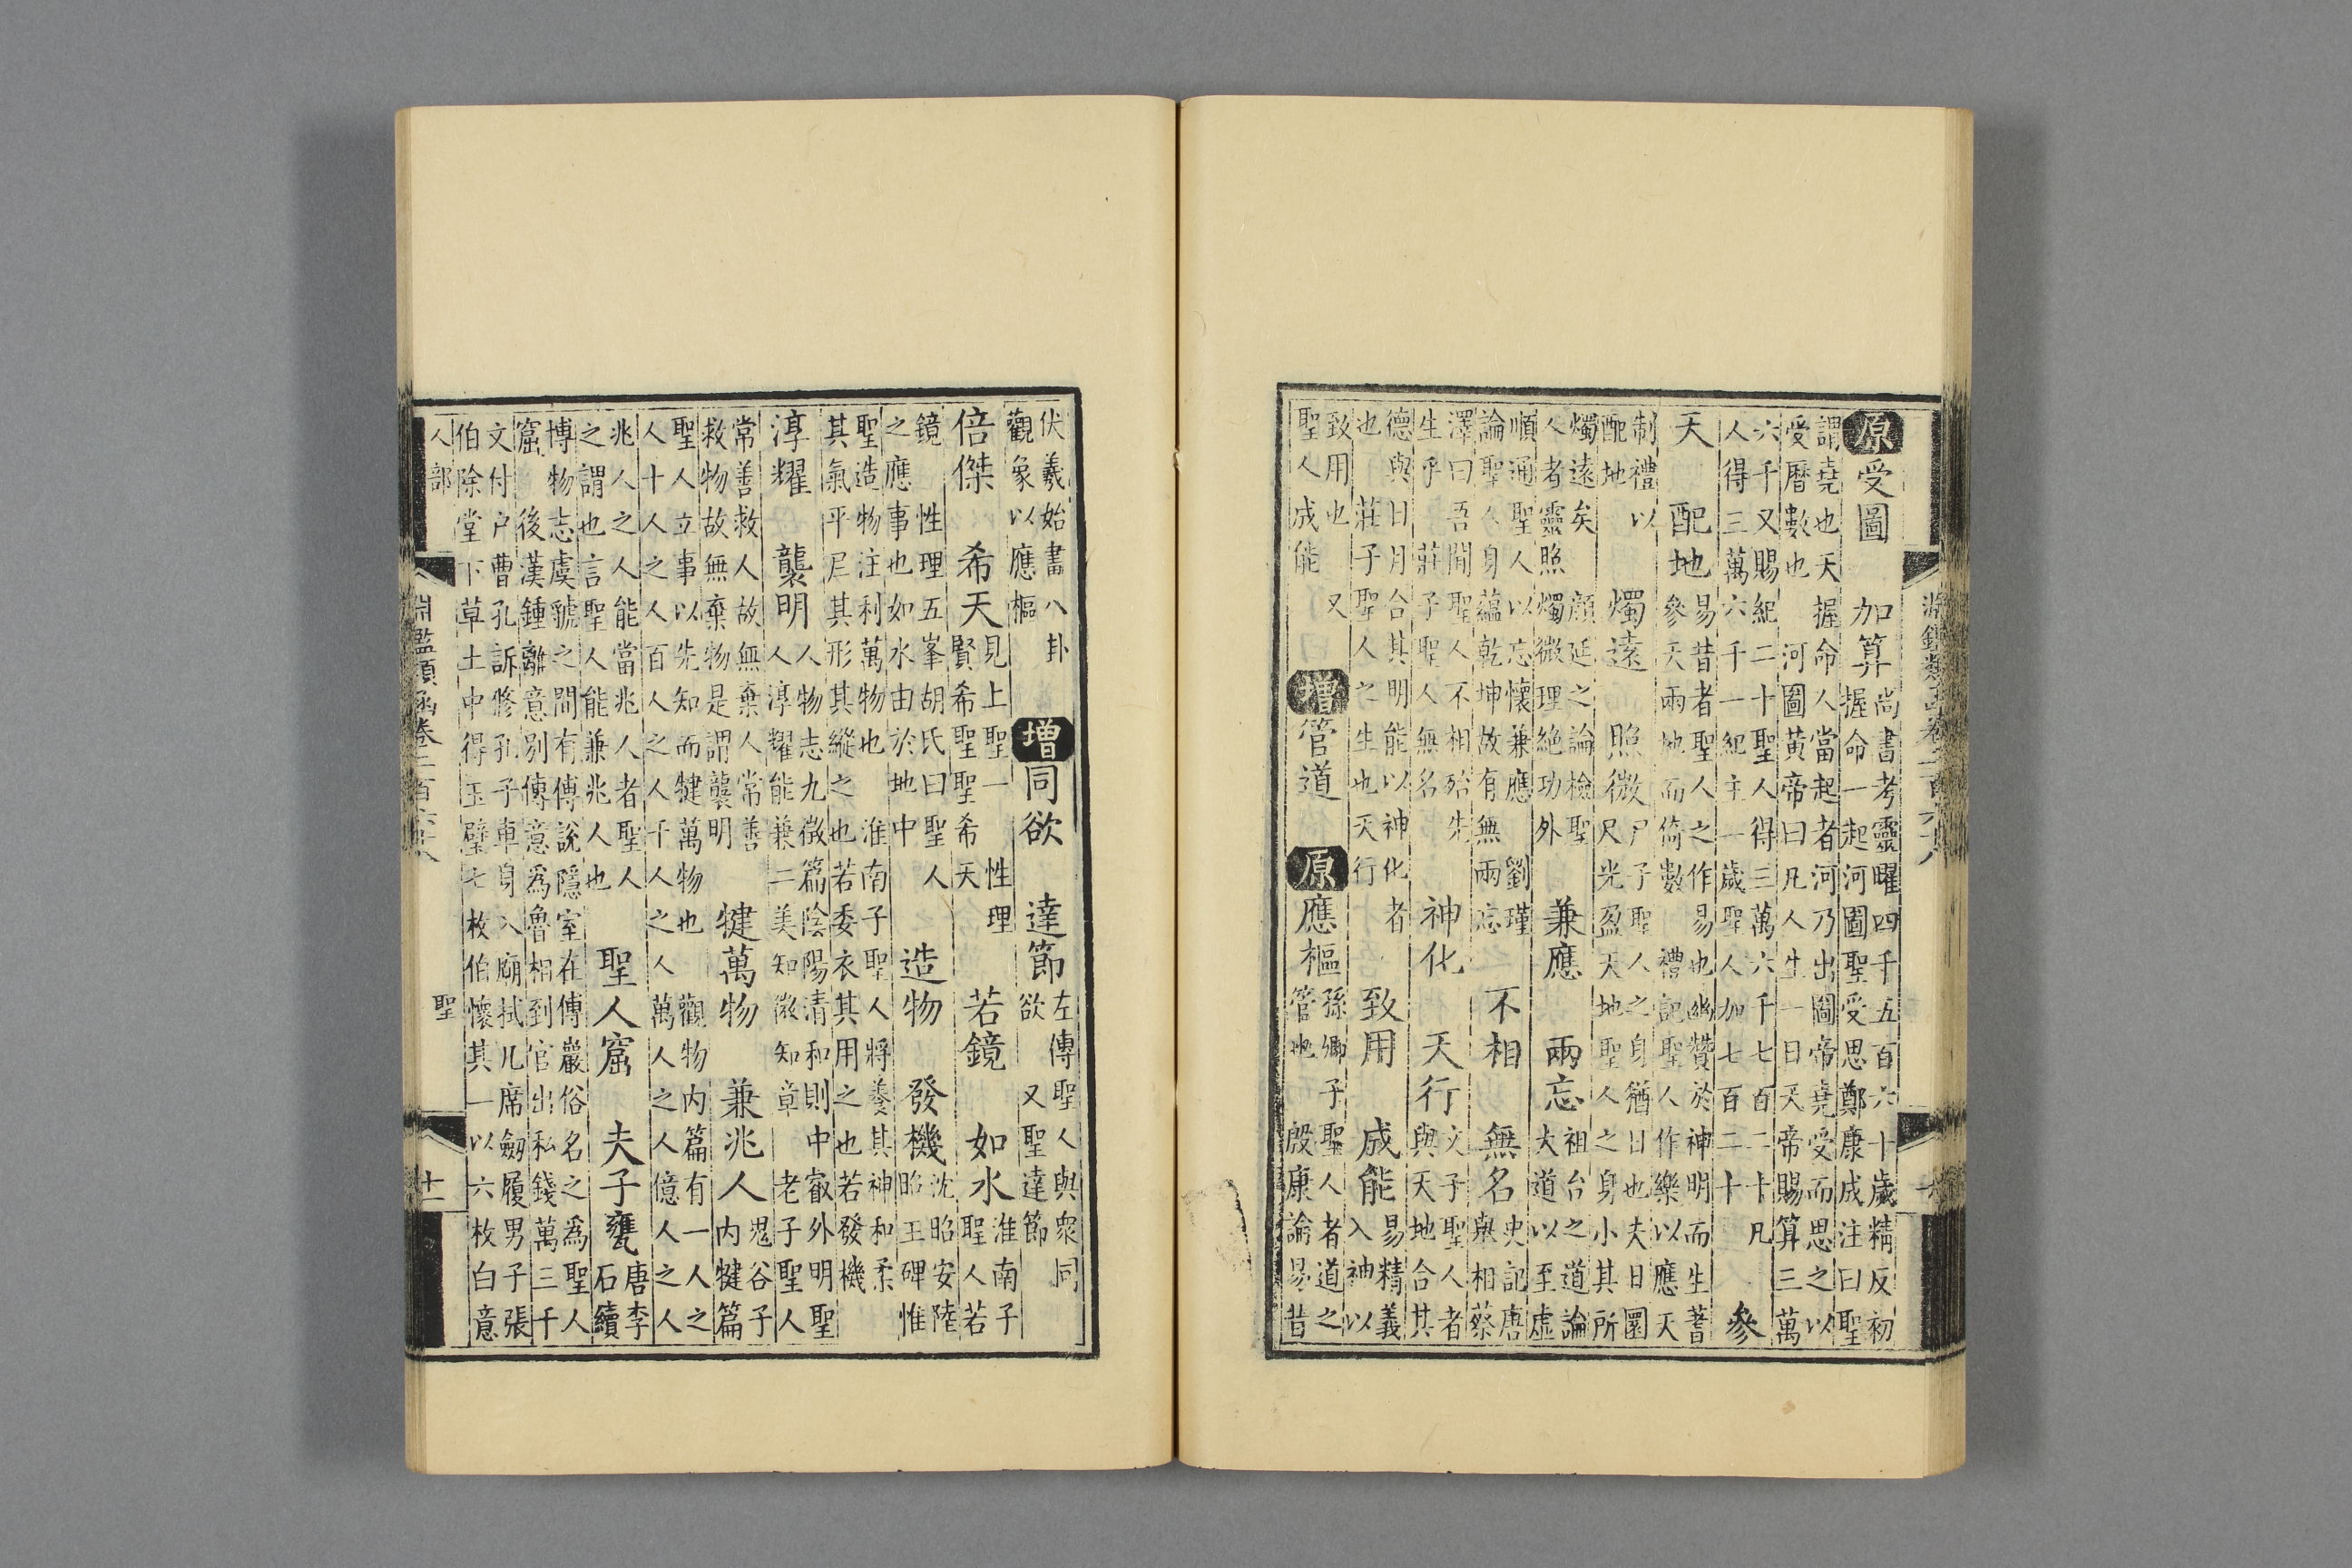 原受圖
加算
尚書考靈曜四千五百六十歲精反初
握命一起河圖聖受思鄭康成注曰聖
謂堯也天握命人當起者河乃出圖帝堯受而思之以
受曆數也
河圖黃帝曰凡人生一日天帝賜算三萬
六千又賜紀二十聖人得三萬六千七百二十凡
人得三萬六千一紀主一歲聖人加七百二十
參
天
配地
易昔者聖人之作易也幽贊於神明而生蓍
參天兩地而倚數
禮記聖人作樂以應天
制禮以
配地
燭遠
照微
尸子聖人之身猶日也夫日圜
尺光盈天地聖人之身小其所
燭遠矣
顔延之論檢聖
人者靈照燭微理絶功外
兼應
兩忘
祖台之道論
大道以至虛
順通聖人以忘懷兼應
劉瑾
論聖人身蘊乾坤故有無兩忘
不相
無名
史記唐
舉相蔡
澤曰吾聞聖人不相殆先
生乎
莊子聖人無名
神化
天行
文子聖人者
與天地合其
德與日月合其明能以神化者
也
莊子聖人之生也天行
致用
成能
易精義
入神以
致用也
又
聖人成能
增管道
原應樞
孫卿子聖人者道之
管也
殷康論易昔
伏羲始畫八卦
觀象以應樞
增同欲
達節
左傳聖人與衆同
欲
又聖達節
倍傑
希天
見上聖一
性理
賢希聖聖希天
若鏡
如水
淮南子
聖人若
鏡
性理五峯胡氏曰聖人
之應事也如水由於地中
造物
發機
沈昭安陸
昭王碑惟
聖造物注利萬物也
淮南子聖人將養其神和柔
其氣平𡰥其形其縱之也若委衣其用之也若發機
淳耀
襲明
人物志九徵篇陰陽清和則中叡外明聖
人淳耀能兼二美知微知章
老子聖人
常善救人故無棄人常善
救物故無棄物是謂襲明
犍萬物
兼兆人
鬼谷子
内犍篇
聖人立事以先知而犍萬物也
觀物内篇有一人之
人十人之人百人之人千人之人萬人之人億人之人
兆人之人人能當兆人者聖人
之謂也言聖人能兼兆人也
聖人窟
夫子甕
唐李
石續
博物志虞虢之間有傅說隱室在傅巖俗名之為聖人
窟
後漢鍾離意別傳意為魯相到官出私錢萬三千
文付户曹孔訴修孔子車身入廟拭几席劔履男子張
伯除堂下草土中得玉璧七枚伯懷其一以六枚白意
人部
淵鑑類函卷二百六十八
聖
十一